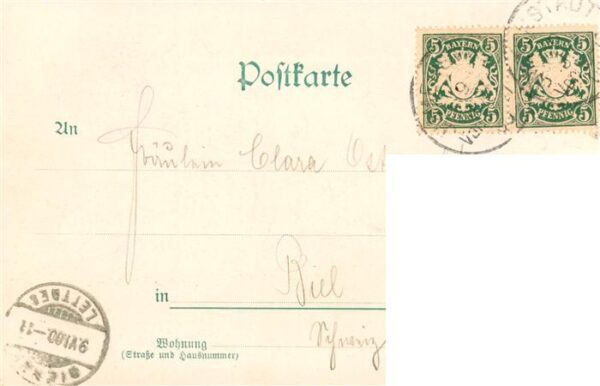 5 BAYERN 5
5 PFENNIG 5
5 BAYERN 5
5 PFENNIG 5
STADT
Postkarte
An
Fräulein Clara Ost
in
Biel
Wohnung
(Straße und Hausnummer)
Schweiz
LETTDES
9.VI.00.-11
BIE